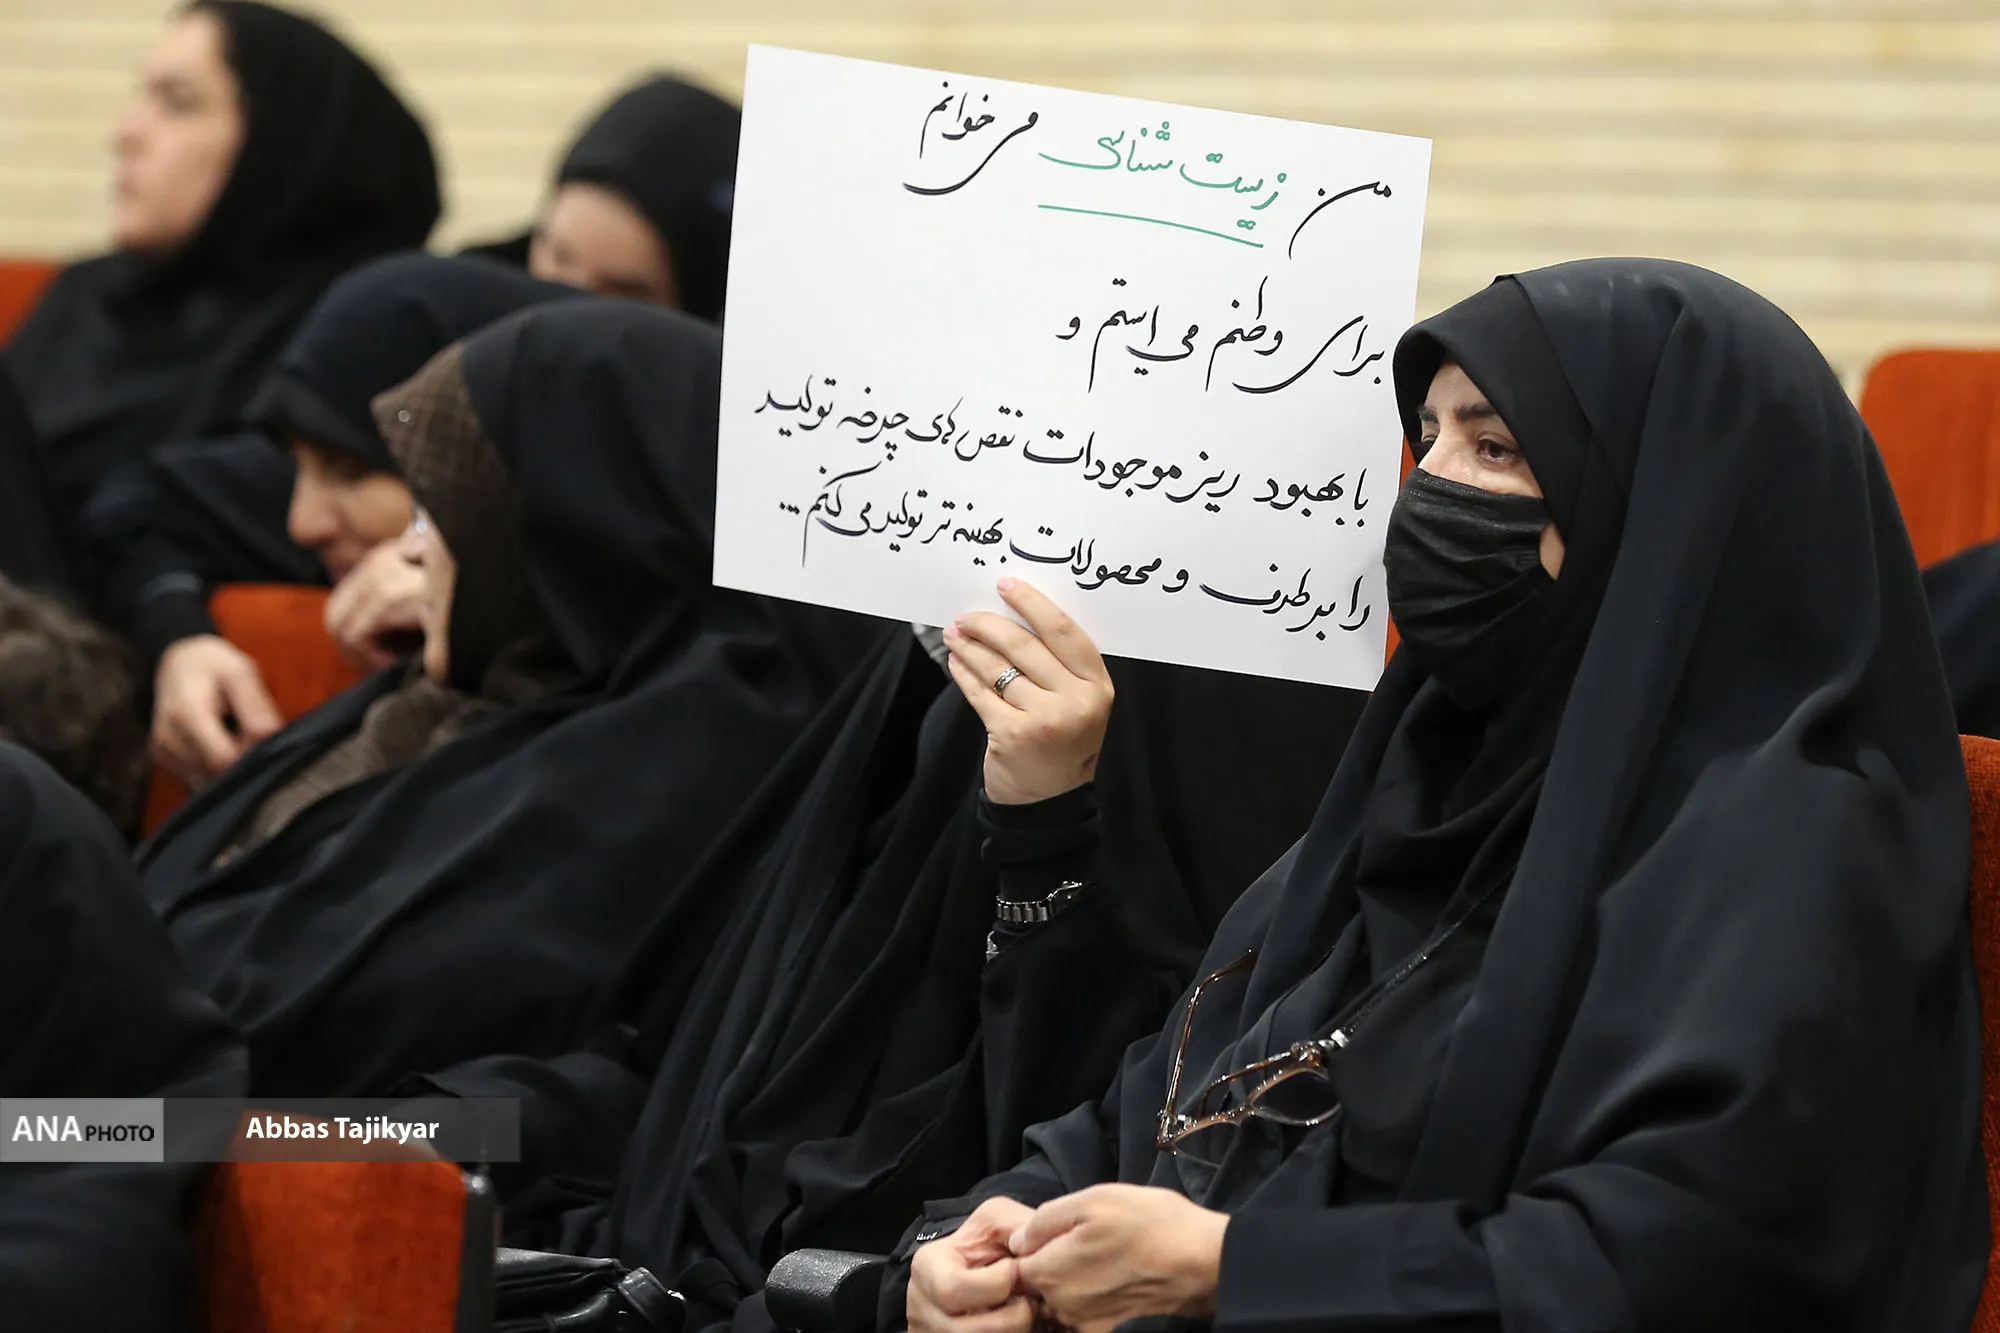 من زیست شناسی می خوانم
برای وطنم می ایستم و
با بهبود ریز موجودات نقص های چرخه تولید
را برطرف و محصولات بهینه تر تولید می کنم...
ANA PHOTO
Abbas Tajikyar